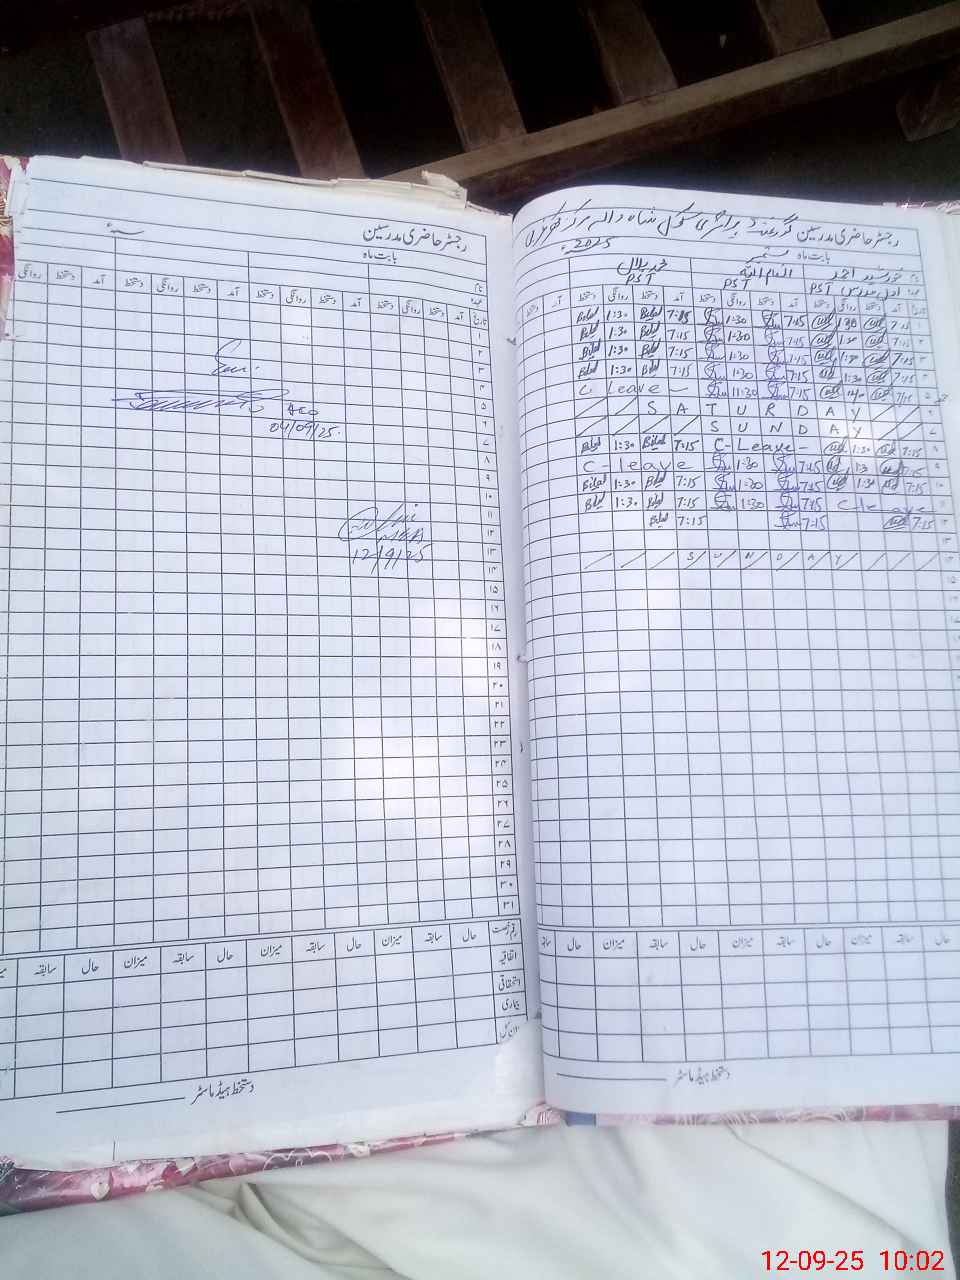 رجسٹر حاضری مدرسین گورنمنٹ پرائمری سکول شاہ والہ مرکز
بابت ماہ ستمبر 2025ء
نام خورشید احمد انعام اللہ محمد بلال
عہدہ PST PST PST
تاریخ آمد دستخط روانگی دستخط آمد دستخط روانگی دستخط آمد دستخط روانگی دستخط آمد
۱ 7:15 1:30 7:15 1:30 7:15 Bilal 1:30 Bilal
۲ 7:15 1:30 7:15 1:30 7:15 Bilal 1:30 Bilal
۳ 7:15 1:30 7:15 1:30 7:15 Bilal 1:30 Bilal
۴ 7:15 1:30 7:15 1:30 7:15 Bilal 1:30 Bilal
۵ 7:15 7:15 11:30 C Leave
۶ SATURDAY
۷ SUNDAY
۸ 7:15 1:30 C-Leave- 7:15 Bilal 1:30 Bilal
۹ 7:15 1:30 7:15 1:30 C-leave
۱۰ 7:15 1:30 7:15 1:30 7:15 Bilal 1:30 Bilal
۱۱ C-leave 7:15 1:30 7:15 Bilal 1:30 Bilal
۱۲ 7:15 7:15 7:15 Bilal
۱۳
۱۴ SUNDAY
۱۵
حال سابقہ میزان حال میزان حال سابقہ میزان حال
دستخط ہیڈ ماسٹر
رجسٹر حاضری مدرسین
بابت ماہ
سنہء
نام
عہدہ
تاریخ آمد دستخط روانگی دستخط آمد دستخط روانگی دستخط آمد دستخط روانگی
۱
۲
۳
۴
۵
AEO
۶
04/09/25.
۷
۸
۹
۱۰
۱۱
۱۲
MEA
۱۳
12/9/25
۱۴
۱۵
۱۶
۱۷
۱۸
۱۹
۲۰
۲۱
۲۲
۲۳
۲۴
۲۵
۲۶
۲۷
۲۸
۲۹
۳۰
۳۱
قسم رخصت حال سابقہ میزان حال سابقہ میزان حال سابقہ میزان حال سابقہ
اتفاقیہ
استحقاقی
بیماری
دستخط ہیڈ ماسٹر
12-09-25 10:02